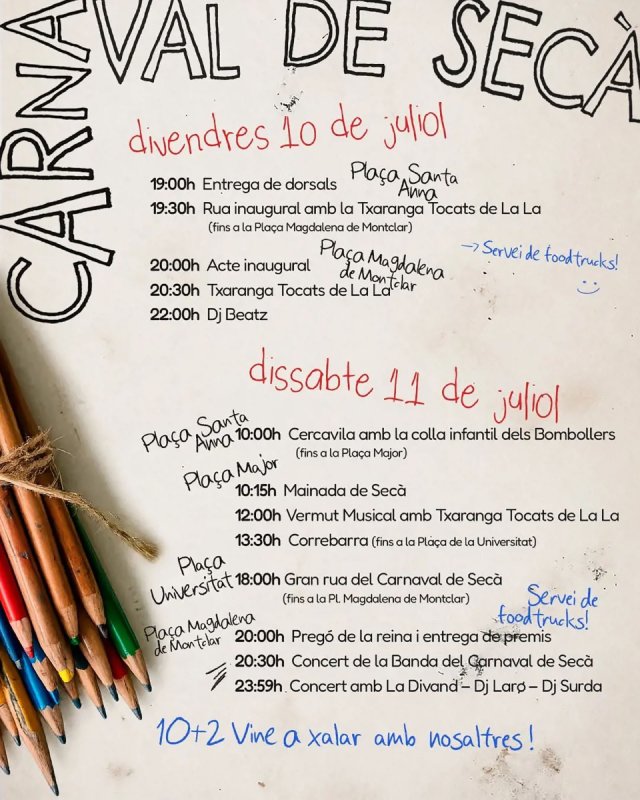 CARNAVAL DE SECÀ
divendres 10 de juliol
19:00h Entrega de dorsals
Plaça Santa
Anna
19:30h Rua inaugural amb la Txaranga Tocats de La La
(fins a la Plaça Magdalena de Montclar)
20:00h Acte inaugural
Plaça Magdalena
de Montclar
→ Servei de foodtrucks!
20:30h Txaranga Tocats de La La
22:00h Dj Beatz
dissabte 11 de juliol
Plaça Santa
Anna
10:00h Cercavila amb la colla infantil dels Bombollers
(fins a la Plaça Major)
Plaça Major
10:15h Mainada de Secà
12:00h Vermut Musical amb Txaranga Tocats de La La
13:30h Correbarra (fins a la Plaça de la Universitat)
Plaça
Universitat
18:00h Gran rua del Carnaval de Secà
(fins a la Pl. Magdalena de Montclar)
Servei de
foodtrucks!
Plaça Magdalena
de Montclar
20:00h Pregó de la reina i entrega de premis
20:30h Concert de la Banda del Carnaval de Secà
23:59h Concert amb La Divand – Dj Larø – Dj Surda
10+2 Vine a xalar amb nosaltres!